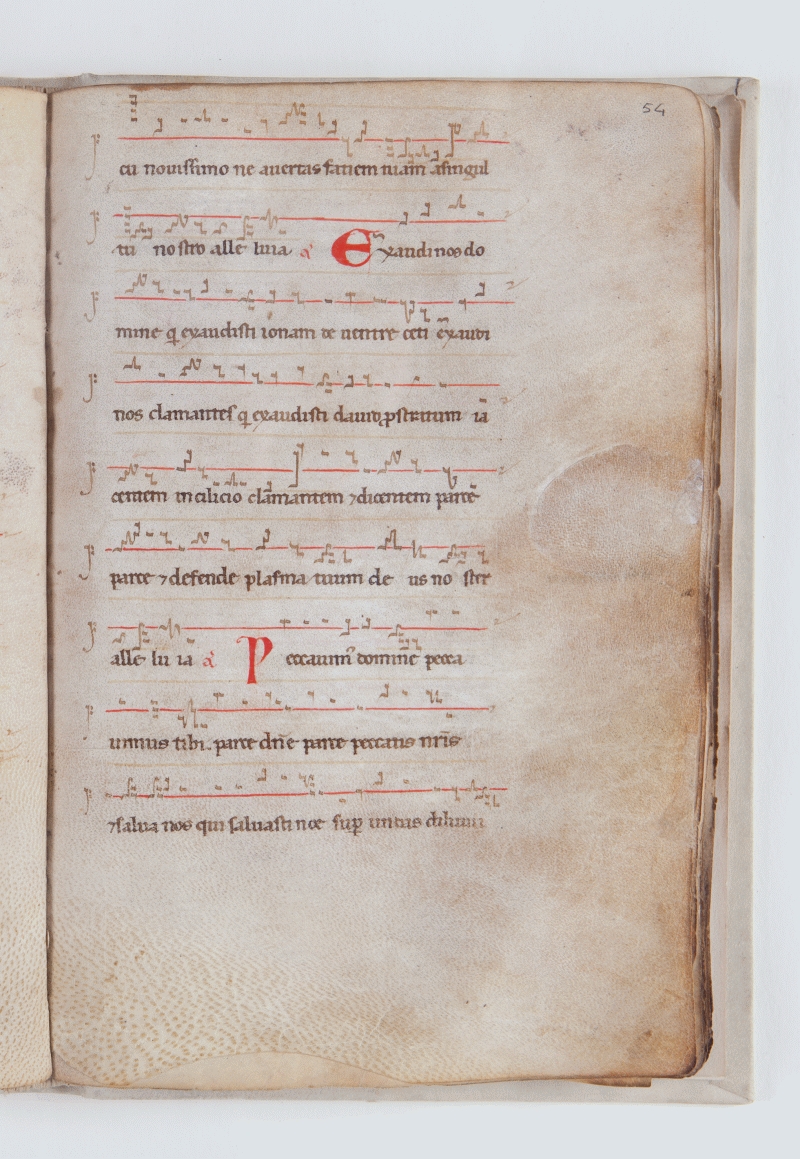 54
cu nouissimo ne auertas faciem tuam a singul
tu nostro alle luia a Exaudi nos do
mine q exaudisti ionam de uentre ceti exaudi
nos clamantes q exaudisti dauid pstratum ia
centem in cilicio clamantem ⁊ dicentem parce
parce ⁊ defende plasma tuum de us no str
alle lu ia a Peccauim domine pecca
uimus tibi parce dn̄e parce peccatis nr̄is
⁊ salua nos qui saluasti noe sup undas diluuii